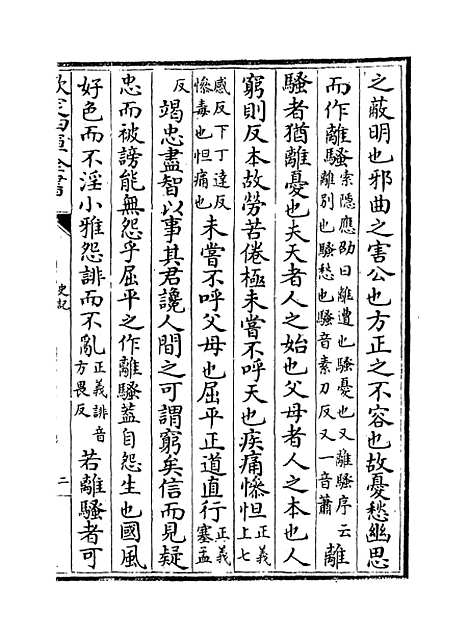 之蔽明也邪曲之害公也方正之不容也故憂愁幽思
而作離騷索隱應劭曰離遭也騷憂也又離騷序云離別也騷愁也騷音素刀反又一音蕭離
騷者猶離憂也夫天者人之始也父母者人之本也人
窮則反本故勞苦倦極未嘗不呼天也疾痛慘怛正義上七
感反下丁達反慘毒也怛痛也未嘗不呼父母也屈平正道直行正義寒孟
反竭忠盡智以事其君讒人間之可謂窮矣信而見疑
忠而被謗能無怨乎屈平之作離騷蓋自怨生也國風
好色而不淫小雅怨誹而不亂正義誹音方畏反若離騷者可
欽定四庫全書
史記
二